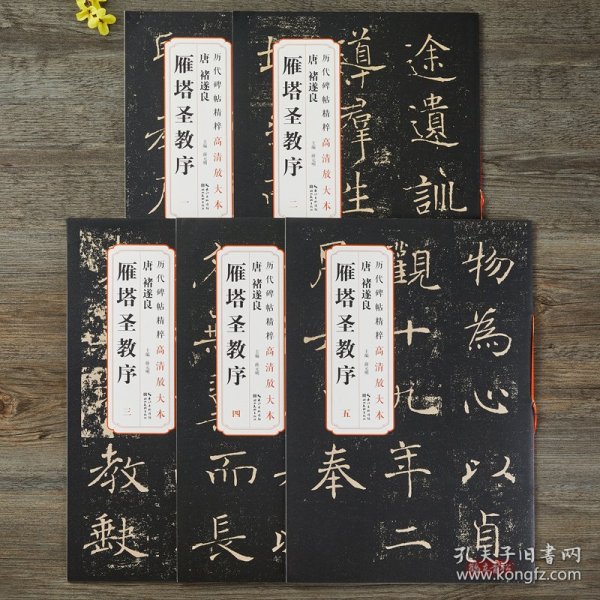 历代碑帖精粹 高清放大本
唐 褚遂良
雁塔圣教序
一
主编 薛元明
历代碑帖精粹 高清放大本
唐 褚遂良
雁塔圣教序
二
主编 薛元明
途遗訓
導群生
历代碑帖精粹 高清放大本
唐 褚遂良
雁塔圣教序
三
主编 薛元明
教缺
历代碑帖精粹 高清放大本
唐 褚遂良
雁塔圣教序
四
主编 薛元明
而長
历代碑帖精粹 高清放大本
唐 褚遂良
雁塔圣教序
五
主编 薛元明
物為心以貞
觀十九年二
奉
孔夫子旧书网
www.kongfz.com